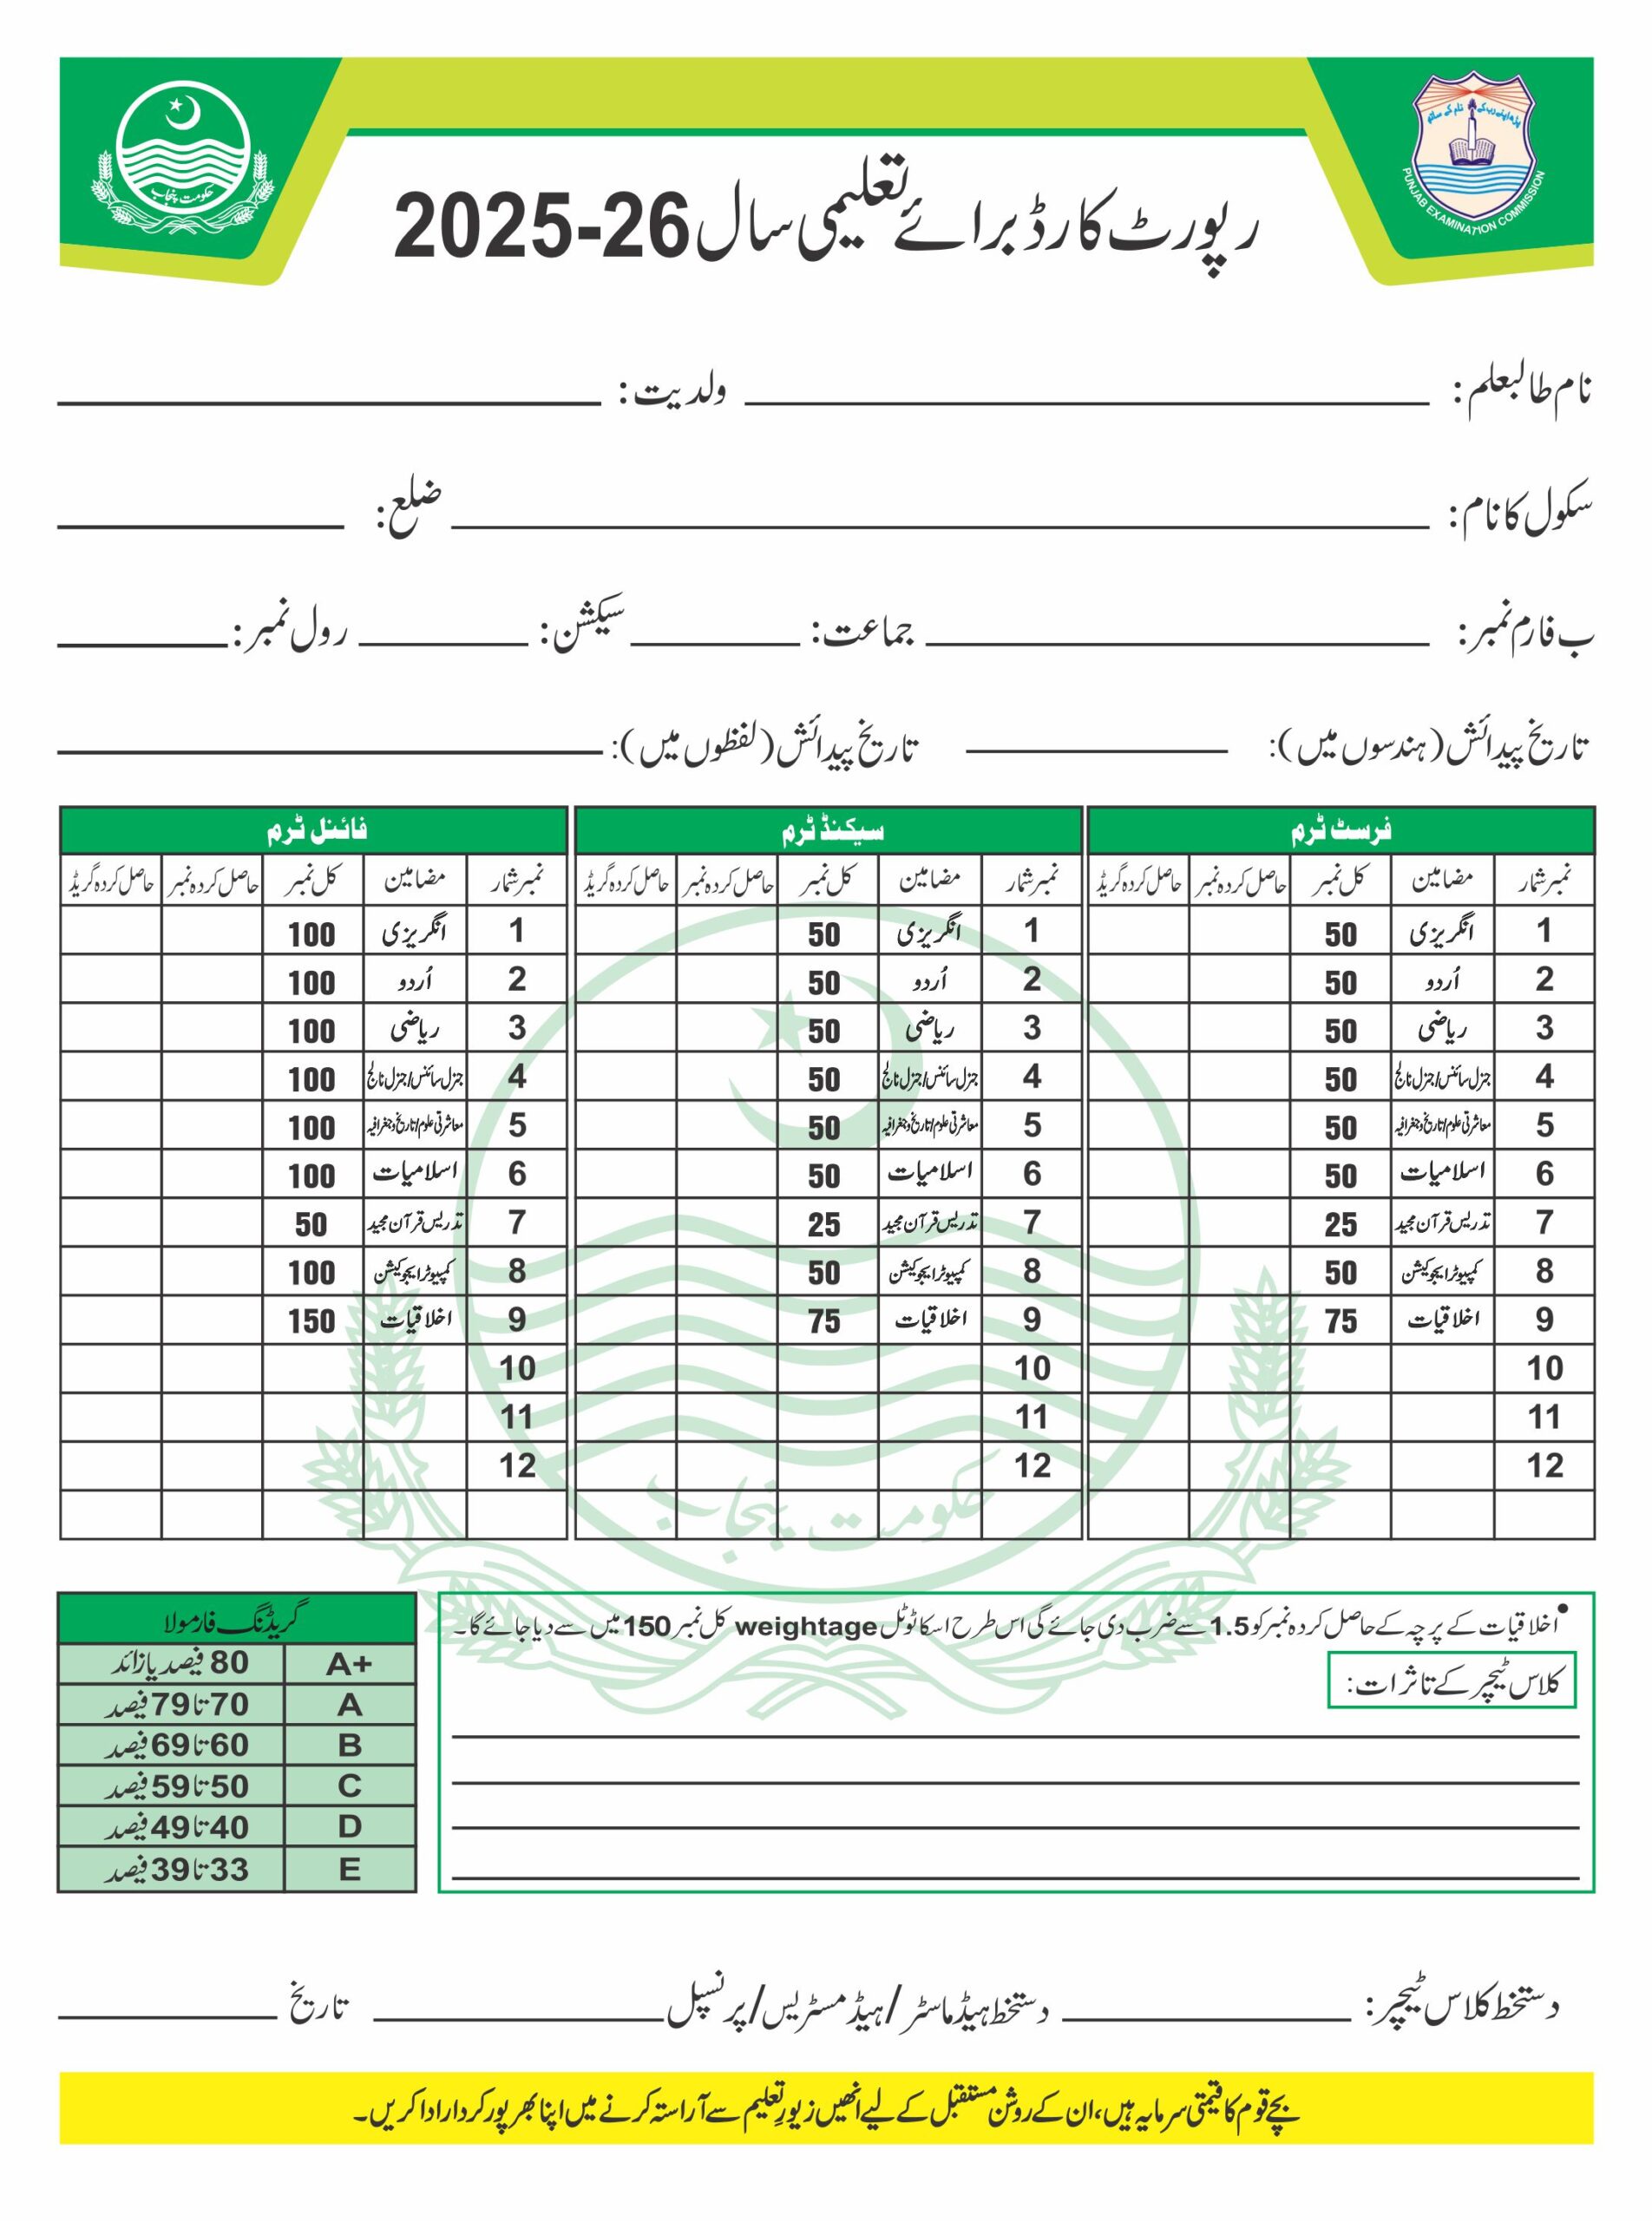 حکومت پنجاب
پڑھ اپنے رب کے نام کے ساتھ
PUNJAB EXAMINATION COMMISSION
رپورٹ کارڈ برائے تعلیمی سال 2025-26
نام طالبعلم: ولدیت:
سکول کا نام: ضلع:
ب فارم نمبر: جماعت: سیکشن: رول نمبر:
تاریخ پیدائش (ہندسوں میں): تاریخ پیدائش (لفظوں میں):
فرسٹ ٹرم سیکنڈ ٹرم فائنل ٹرم
نمبر شمار مضامین کل نمبر حاصل کردہ نمبر حاصل کردہ گریڈ نمبر شمار مضامین کل نمبر حاصل کردہ نمبر حاصل کردہ گریڈ نمبر شمار مضامین کل نمبر حاصل کردہ نمبر حاصل کردہ گریڈ
1 انگریزی 50 1 انگریزی 50 1 انگریزی 100
2 اُردو 50 2 اُردو 50 2 اُردو 100
3 ریاضی 50 3 ریاضی 50 3 ریاضی 100
4 جنرل سائنس/جنرل نالج 50 4 جنرل سائنس/جنرل نالج 50 4 جنرل سائنس/جنرل نالج 100
5 معاشرتی علوم/تاریخ و جغرافیہ 50 5 معاشرتی علوم/تاریخ و جغرافیہ 50 5 معاشرتی علوم/تاریخ و جغرافیہ 100
6 اسلامیات 50 6 اسلامیات 50 6 اسلامیات 100
7 تدریس قرآن مجید 25 7 تدریس قرآن مجید 25 7 تدریس قرآن مجید 50
8 کمپیوٹر ایجوکیشن 50 8 کمپیوٹر ایجوکیشن 50 8 کمپیوٹر ایجوکیشن 100
9 اخلاقیات 75 9 اخلاقیات 75 9 اخلاقیات 150
10 10 10
11 11 11
12 12 12
حکومت پنجاب
• اخلاقیات کے پرچہ کے حاصل کردہ نمبر کو 1.5 سے ضرب دی جائے گی اس طرح اسکا ٹوٹل weightage کل نمبر 150 میں سے دیا جائے گا۔
کلاس ٹیچر کے تاثرات:
گریڈنگ فارمولا
A+ 80 فیصد یا زائد
A 70 تا 79 فیصد
B 60 تا 69 فیصد
C 50 تا 59 فیصد
D 40 تا 49 فیصد
E 33 تا 39 فیصد
دستخط کلاس ٹیچر: دستخط ہیڈ ماسٹر/ہیڈ مسٹریس/پرنسپل تاریخ
بچے قوم کا قیمتی سرمایہ ہیں، ان کے روشن مستقبل کے لیے انھیں زیورِ تعلیم سے آراستہ کرنے میں اپنا بھرپور کردار ادا کریں۔